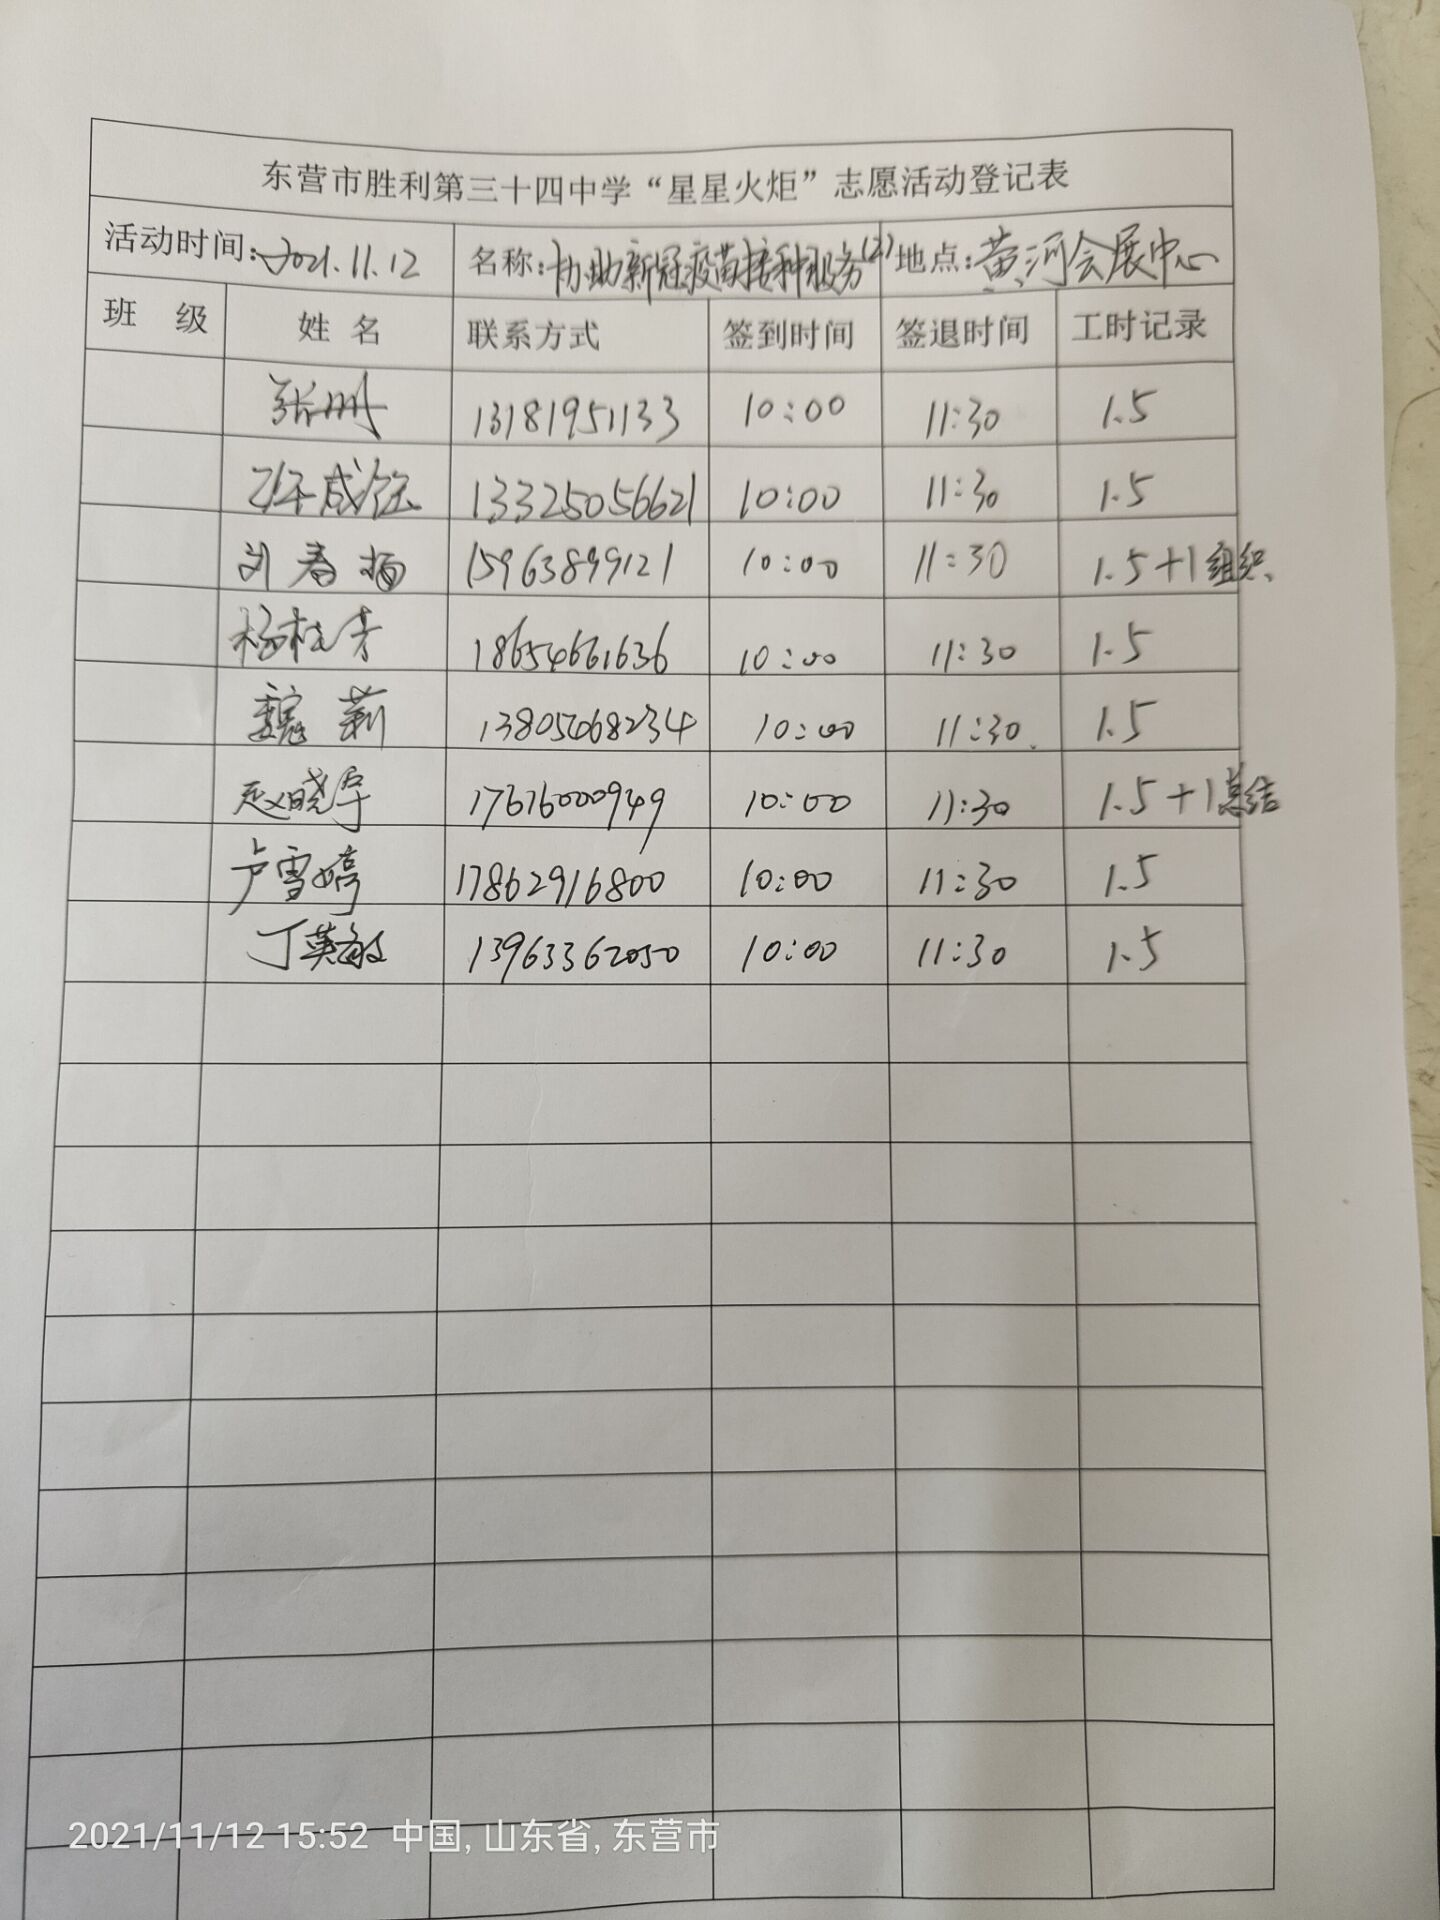 东营市胜利第三十四中学“星星火炬”志愿活动登记表
活动时间:2021.11.12 名称:协助新冠疫苗接种服务(2) 地点:黄河会展中心
班 级 姓 名 联系方式 签到时间 签退时间 工时记录
张 13181951133 10:00 11:30 1.5
13325056621 10:00 11:30 1.5
刘春梅 15963899121 10:00 11:30 1.5+1组织
杨桂芳 18654661636 10:00 11:30 1.5
魏莉 13805468234 10:00 11:30 1.5
赵晓军 17616000949 10:00 11:30 1.5+1总结
卢雪婷 17862916800 10:00 11:30 1.5
丁英敏 13963362050 10:00 11:30 1.5
2021/11/12 15:52 中国, 山东省, 东营市